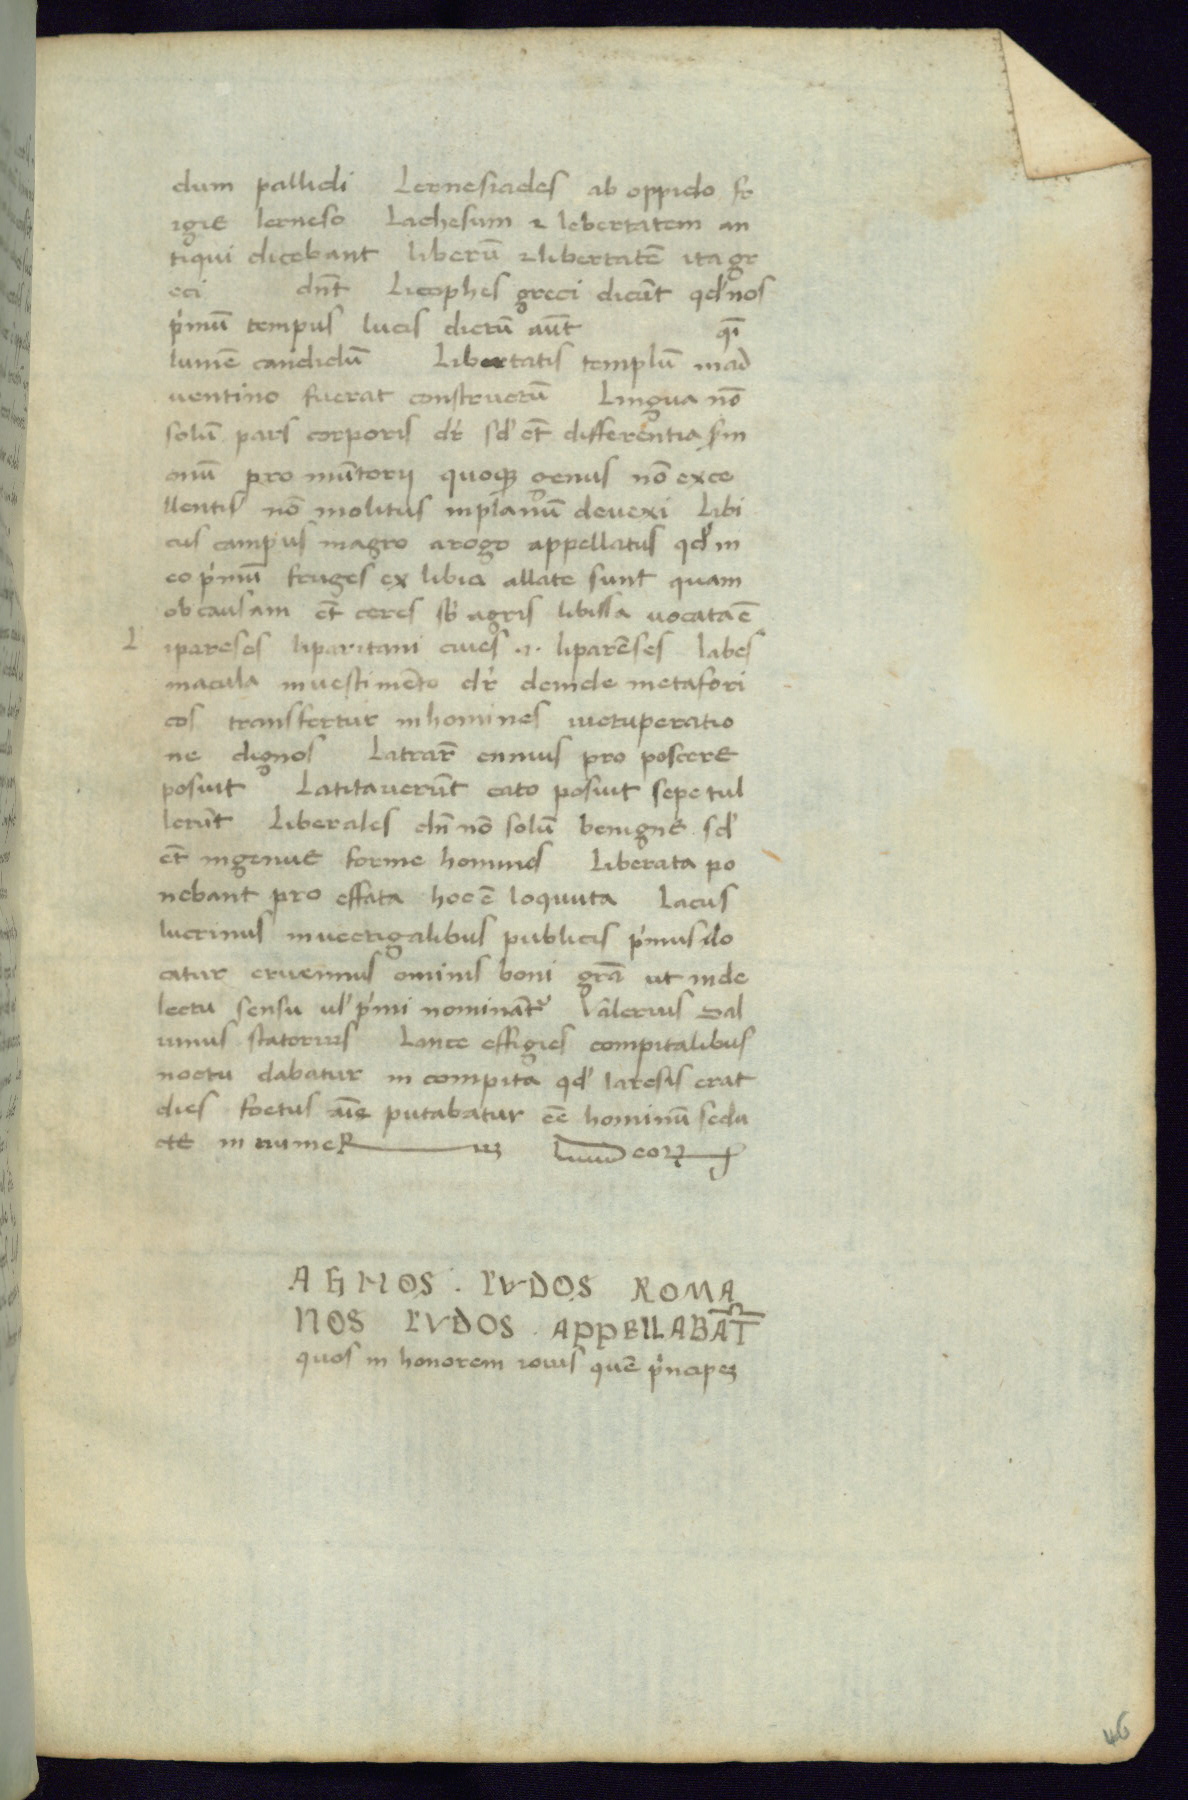 dum pallidi Lernesiades ab oppido fo
igie lerneso Lachesum & lebertatem an
tiqui dicebant liberū & libertatē ita gr
eci dn̄t Licophes greci dicūt qd' nos
p'mū tempus lucis dictū aūt qi
lumē candidū Libertatis templū inad
uentino fuerat constructū Lingua nō
solū pars corporis dr̄ sd' et̄ differentia s'm
onū pro mūtorij quoqꝫ genus nō exce
llentis nō molitus inplanū deuexi Libi
cus campus magro arogo appellatus qd' in
eo p'mū fruges ex libia allate sunt quam
ob causam et̄ ceres ab agris libissa uocata ē
L ipareses liparitani ciues .i. liparēses labes
macula inuestimēto dr̄ deinde metafori
cos transfertur inhomines uictuperatio
ne dignos Latrar̄ ennius pro poscere
posuit Latitauerūt cato posuit sepe tul
lerūt Liberales dn̄ nō solū benigne sd'
et̄ ingenue forme hominis Liberata po
nebant pro effata hoc ē loquuta Lacus
lucrinus inuectigalibus publicis p'mus lo
catur eruennus ominis boni grā ut inde
lectu sensu ul' p'mi nominātr Valerius Sal
uinus statorius Lance effigies compitalibus
noctu dabatur in compita qd' laresis erat
dies foctus aīe putabatur ēe hominū seda
cte in numeR us deorꝝ
AGNOS . LVDOS ROMA
NOS LVDOS . APPELLABANT
quos in honorem iouis quē p'ncipeꝫ
46